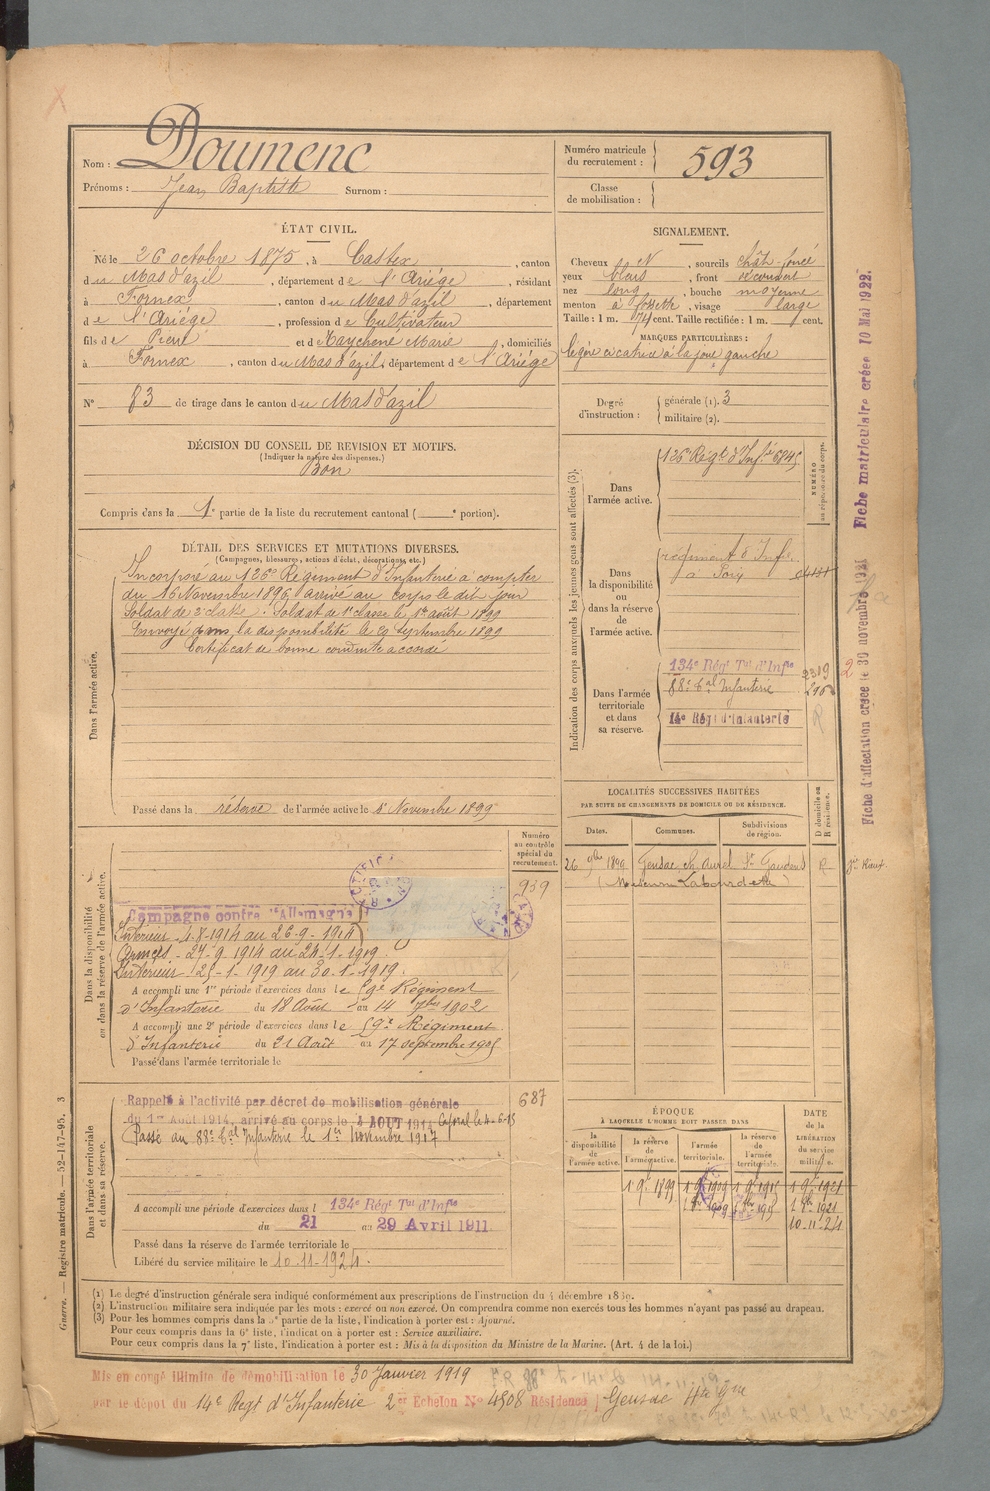 Nom : Doumenc
Prénoms : Jean Baptiste Surnom :
Numéro matricule du recrutement : 593
Classe de mobilisation :
ÉTAT CIVIL.
Né le 26 octobre 1875, à Castex, canton
du Mas d'azil, département de l'Ariége, résidant
à Fornex, canton du Mas d'azil, département
de l'Ariége, profession de Cultivateur
fils de Pierre et de Maychene Marie, domiciliés
à Fornex, canton du Mas d'azil, département de l'Ariége
N° 83 de tirage dans le canton du Mas d'azil
SIGNALEMENT.
Cheveux N, sourcils chât. foncé
yeux bleus, front découvert
nez long, bouche moyenne
menton à fossette, visage large
Taille : 1 m. 74 cent. Taille rectifiée : 1 m. cent.
MARQUES PARTICULIÈRES :
légère cicatrice à la joue gauche
Degré d'instruction : générale (1). 3
militaire (2).
DÉCISION DU CONSEIL DE REVISION ET MOTIFS.
(Indiquer la nature des dispenses.)
Bon
Compris dans la 1e partie de la liste du recrutement cantonal ( e portion).
DÉTAIL DES SERVICES ET MUTATIONS DIVERSES.
(Campagnes, blessures, actions d'éclat, décorations, etc.)
Dans l'armée active.
Incorporé au 126e Régiment d'Infanterie à compter
du 16 Novembre 1896, arrivé au corps le dit jour
Soldat de 2e classe. Soldat de 1e classe le 1er août 1899
Envoyé dans la disponibilité le 20 Septembre 1899
Certificat de bonne conduite accordé
Passé dans la réserve de l'armée active le 1er Novembre 1899
Indication des corps auxquels les jeunes gens sont affectés (3).
NUMÉRO au répertoire du corps.
Dans l'armée active. 126e Régt d'Infie 6845
Dans la disponibilité ou dans la réserve de l'armée active. régiment d'Infie
à Foix
Dans l'armée territoriale et dans sa réserve. 134e Régt Tal d'Infie 2319
88e Tal Infanterie
14e Régt d'Infanterie R
2
Fiche d'affectation créée le 30 novembre 1921 Fiche matriculaire créée 10 Mai 1922.
LOCALITÉS SUCCESSIVES HABITÉES
PAR SUITE DE CHANGEMENTS DE DOMICILE OU DE RÉSIDENCE.
Dates. Communes. Subdivisions de région. D domicile ou R résidence.
26 9bre 1899 Gensac St Gaudens R
Dans la disponibilité ou dans la réserve de l'armée active.
Numéro au contrôle spécial du recrutement.
939
Campagne contre l'Allemagne
Intérieur 4-8-1914 au 26-9-1914
Armées - 27-9 1914 au 24-1-1919
Intérieur 25-1-1919 au 30-1-1919.
A accompli une 1re période d'exercices dans le 59e Régiment
d'Infanterie du 18 Août au 14 7bre 1902
A accompli une 2e période d'exercices dans le 59e Régiment
d'Infanterie du 21 Août au 17 septembre 1905
Passé dans l'armée territoriale le
Dans l'armée territoriale et dans sa réserve.
687
Rappelé à l'activité par décret de mobilisation générale
du 1er Août 1914, arrivé au corps le 4 AOUT 1914 Caporal le 4-6-15
Passé au 88e Tal Infanterie le 1er Novembre 1917
A accompli une période d'exercices dans l 134e Régt Tal d'Infie
du 21 au 29 Avril 1911
Passé dans la réserve de l'armée territoriale le
Libéré du service militaire le 10.11.1924.
ÉPOQUE
À LAQUELLE L'HOMME DOIT PASSER DANS
la disponibilité de l'armée active. la réserve de l'armée active. l'armée territoriale. la réserve de l'armée territoriale. DATE DE LA LIBÉRATION du service militaire.
1 9bre 1899 1 9bre 1909 1 9bre 1915 1 9bre 1921
1 9bre 1909 1 9bre 1915 1 9bre 1921
10-11-24
(1) Le degré d'instruction générale sera indiqué conformément aux prescriptions de l'instruction du 4 décembre 1889.
(2) L'instruction militaire sera indiquée par les mots : exercé ou non exercé. On comprendra comme non exercés tous les hommes n'ayant pas passé au drapeau.
(3) Pour les hommes compris dans la 5e partie de la liste, l'indication à porter est : Ajourné.
Pour ceux compris dans la 6e liste, l'indication à porter est : Service auxiliaire.
Pour ceux compris dans la 7e liste, l'indication à porter est : Mis à la disposition du Ministre de la Marine. (Art. 4 de la loi.)
Guerre. — Registre matricule. — 52-147-95. 3
Mis en congé illimité de démobilisation le 30 Janvier 1919
par le dépôt du 14e Regt d'Infanterie 2er Echelon N° 4508 Résidence Gensac Hte Gne